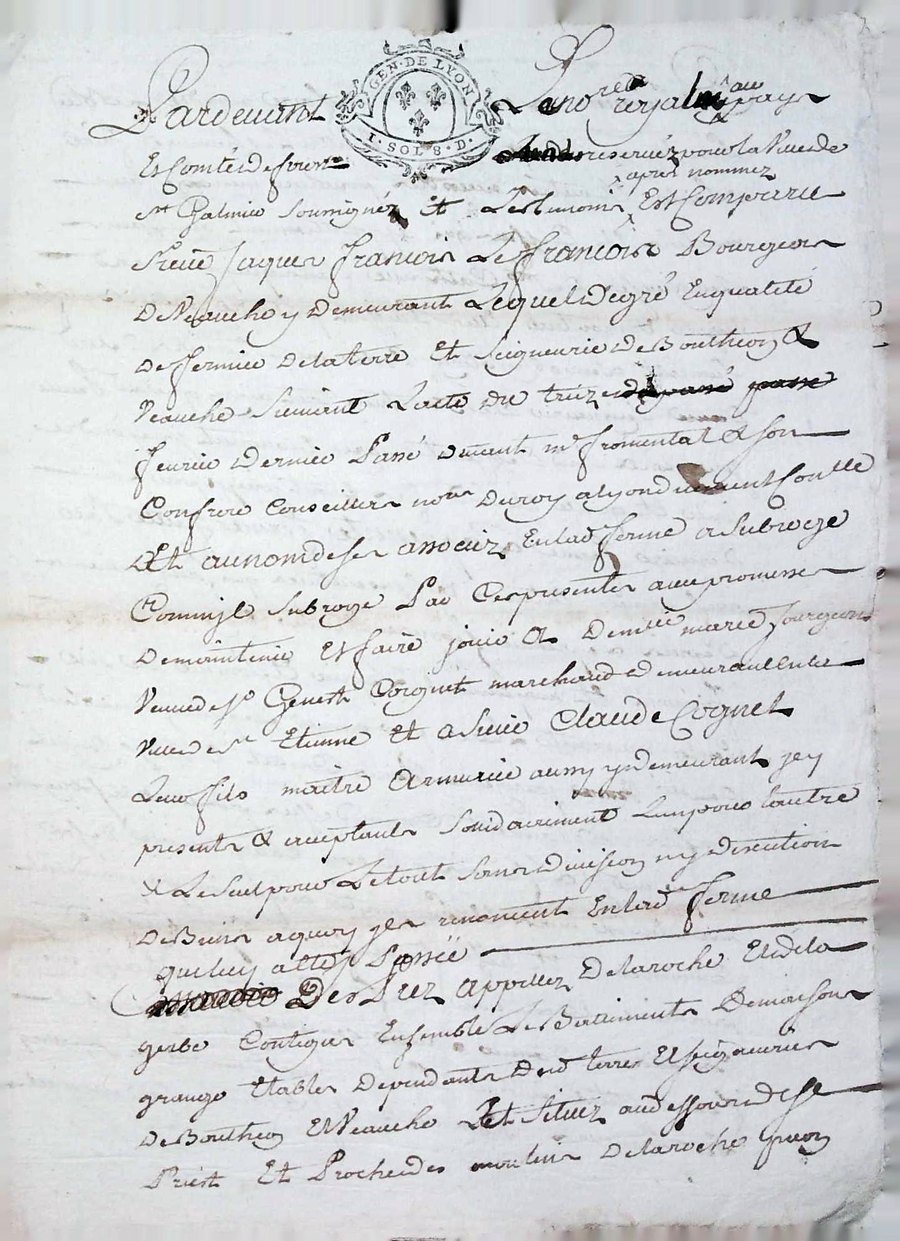 GEN·DE LYON
I·SOL 8·D·
Pardevant Le no.re royal au pays
Et Comté de forez reservez pour la Ville de
apres nommez
St Galmier soussignéz Et Les temoins Est Comparu
Sieur Jaques francois Lefrancois Bourgeois
De Veauche y demeurant Lequel de gré En qualité
De fermier de la terre Et Seigneurie de Boutheon &
Veauche suivant L'acte du treize
fevrier dernier Passé devant me fromental & son
Confrere Conseillers no.res du roy a lyon duement Controllé
Et au nom de ses associez En lad. ferme a subrogé
Comm'jl subroge Par Ces presentes avec promesse
De maintenir Et faire jouir a Demlle marie Jourjeon
Veuve de Sr Genest Cognet marchand demeurant en la
Ville de St Etienne Et a Sieur Claude Cognet
Leur fils maitre Armurier aussy y demeurant jcy
presents & acceptants Solidairement L'un pour l'autre
& Le Seul pour Le tout Sans Division ny discution
De Biens a quoy jls renoncent En lad. ferme
qui luy a été Passée
Des Prez Appellez De la roche Et de la
gerbe Contigus Ensemble Les Batiments De maisons
grange Etables Dependants Desd. terres Et Seigneuries
De Boutheon Et Veauche Et Situez audessous de St
Priest Et Proche des moulins De la roche